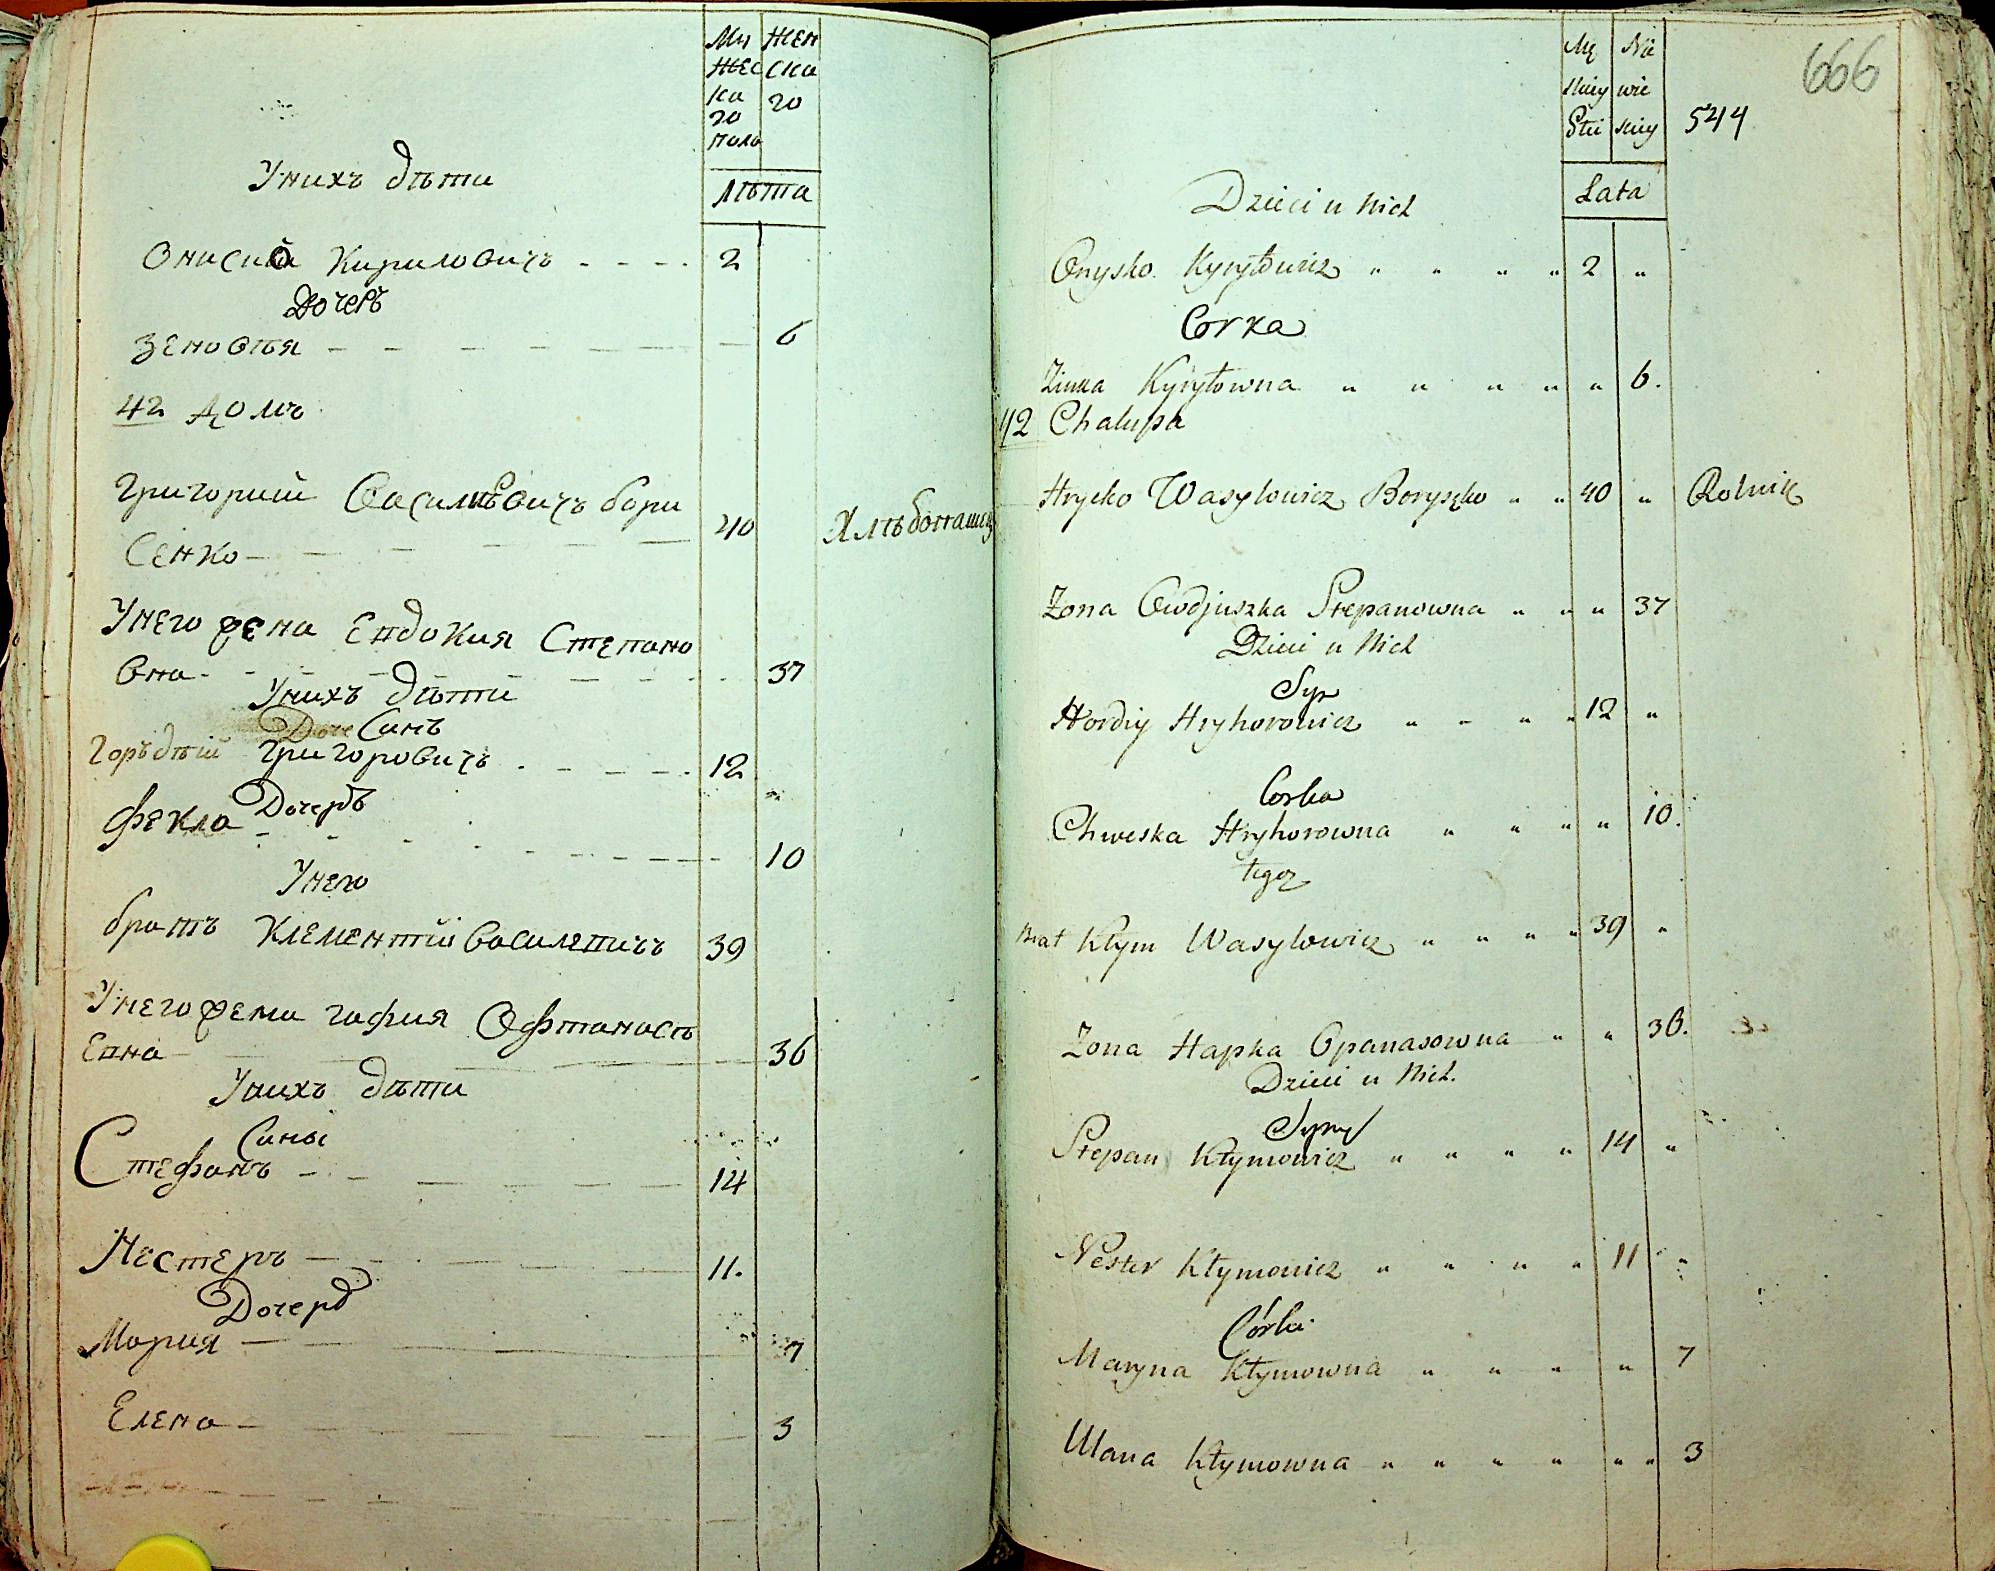 Му Жен
жес ска
ка го
го
пола
лѣта
Унихъ дѣти
Онисий Кириловичъ 2
Дочеръ
Зеновія 6
42 домъ
Григорий Василѣвичъ бори
Сенко 40 Хлѣбопашец
Унего жена Евдокия Степано
вна 37
Унихъ дѣти
Доче Синъ
Горъдѣій Григоровичъ 12
Дочеръ
Фекла 10
Унего
братъ Клементій Василевичъ 39
Унего жена гафия Офтанасѣ
евна 36
Унихъ дѣти
Сины
Стефанъ 14
Нестеръ 11.
Дочеръ
Мария 7
Елена 3
666
Mę Nie
skiey wie
Płci skiey 544
Lata
Dzieci u Nich
Onysko Kyryłowicz " " " " 2 "
Corka
Zinka Kyryłowna " " " " " 6.
42 Chalupa
Hrycko Wasylowicz Boryszko " " 40 " Rolnik
Zona Owdjuszka Stepanowna " " " 37
Dzieci u Nich
Syn
Hordiy Hryhorowicz " " " " 12 "
Corka
Chweska Hryhorowna " " " " 10.
tegoz
Brat Kłym Wasylowicz " " " " 39 "
Zona Hapka Opanasowna " " 36.
Dzieci u Nich.
Syny
Stepan Kłymowicz " " " " 14 "
Nester Kłymowicz " " " " 11 "
Córki
Maryna Kłymowna " " " " 7
Ulana Kłymowna " " " " " " 3